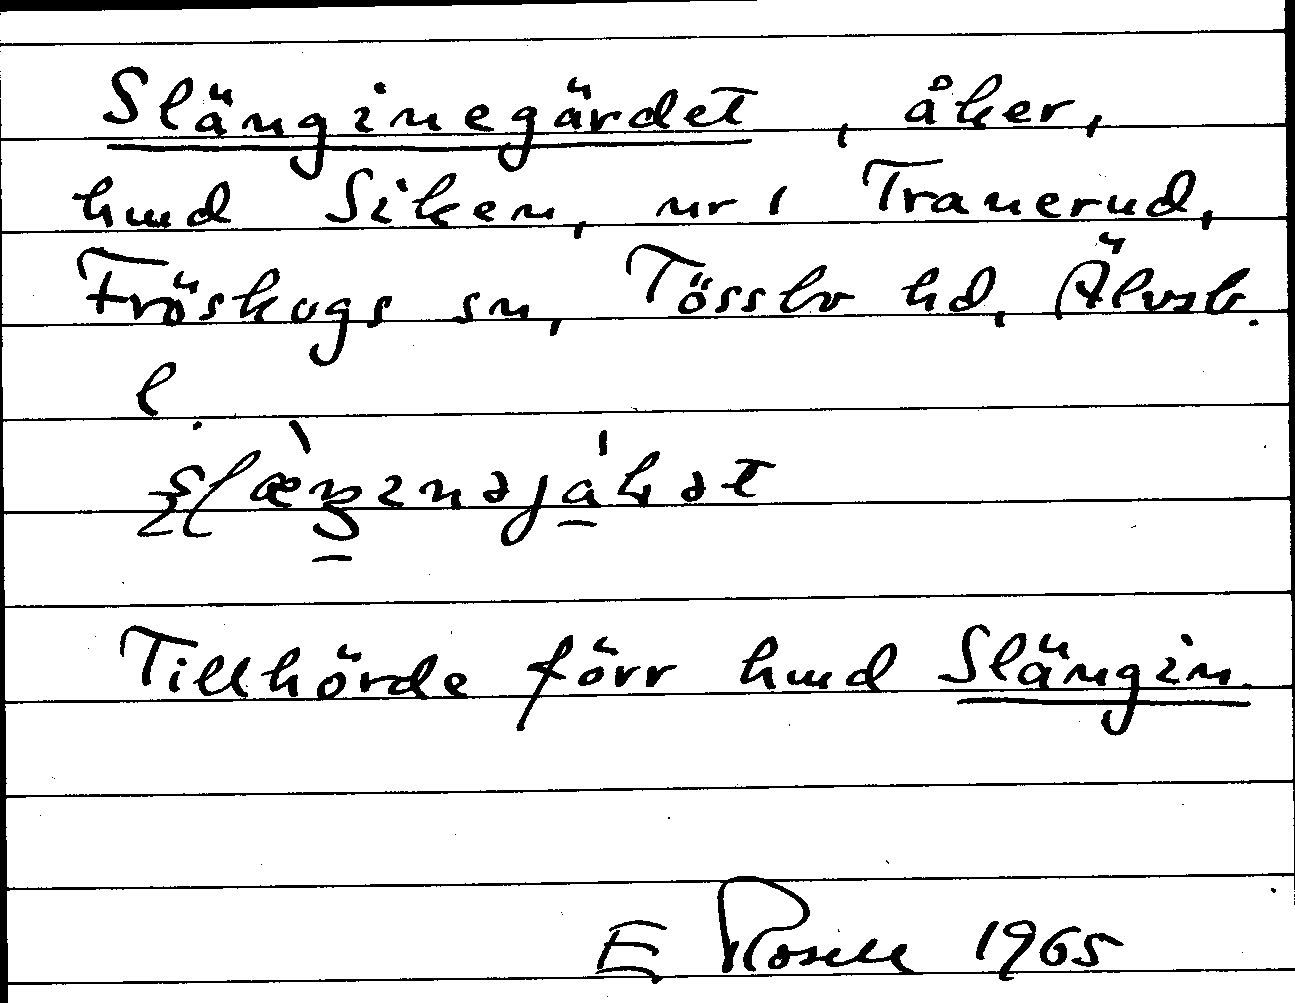 Slänginegärdet, åker,
hmd Siken, nr 1 Tranerud,
Fröskogs sn, Tössbo hd, Älvsb.
l.
Tillhörde förr hmd Slängin.
E Rosell 1965